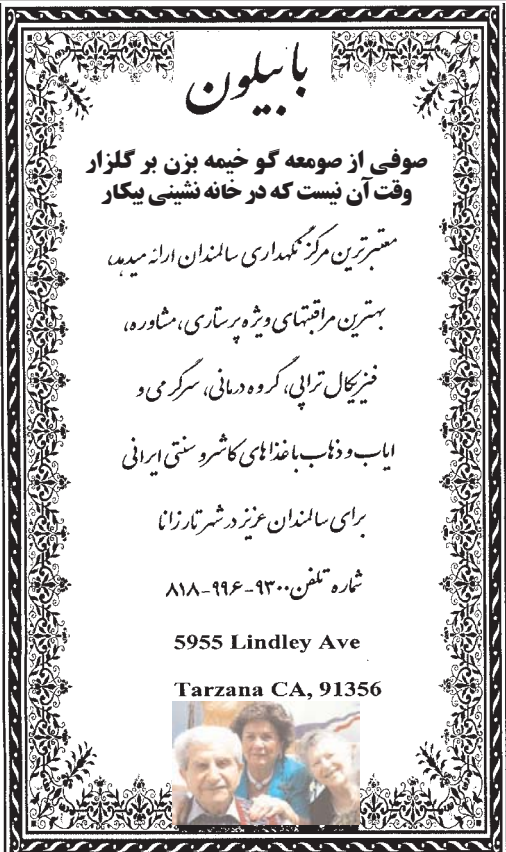 بابیلون
صوفی از صومعه گو خیمه بزن بر گلزار
وقت آن نیست که در خانه نشینی بیکار
معتبرترین مرکز نگهداری سالمندان ارائه میدهد،
بهترین مراقبتهای ویژه پرستاری، مشاوره،
فنریکال تراپی، گروه درمانی، سرگرمی و
ایاب و ذهاب با غذاهای کاشر و سنتی ایرانی
برای سالمندان عزیز در شهر تارزانا
شماره تلفن ۹۳۰۰-۹۹۶-۸۱۸
5955 Lindley Ave
Tarzana CA, 91356